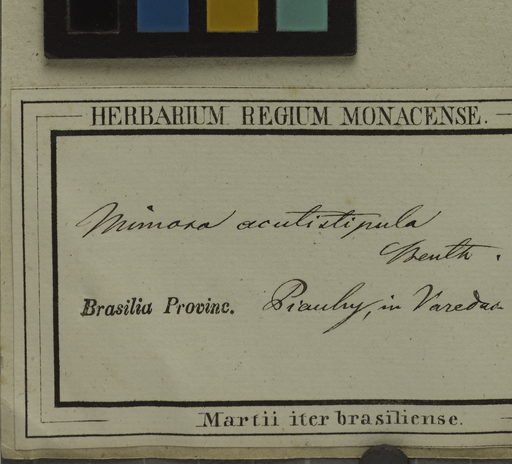 HERBARIUM REGIUM MONACENSE.
Mimosa acutistipula
Benth.
Brasilia Provinc. Piauhy, in Varedas
Martii iter brasiliense.